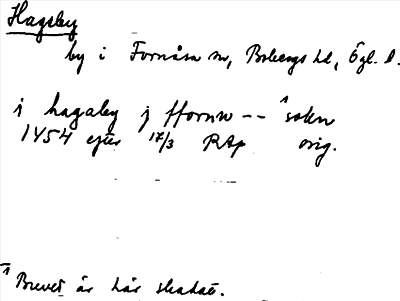 Hagsby
by i Fornåsa sn, Bobergs hd, Ögl. l.
i hagaby j ffornu -- ¹ sokn
1454 efter 17/3 RAp orig.
¹ Brevet är här skadat.